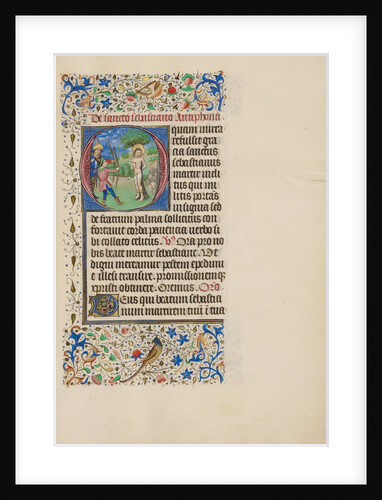 De sancto sebastiano Antiphona
O quam mira
refulsit gra
cia sanctus
sebastianus
martir indi
tus qui mi
litis portās
insignia sed
de fratrum palma sollicitus con
fortauit corda pauencia uerbo si
bi collato celitus. V̄s Ora pro no
bis beate martir sebastiane. Vt
digni mereamur pestem epedimi
e illesi transire. promissionem q̄
xpristi obtinere. Oremus. Oro
Deus qui beatum sebastia
num martirem tuū ī tua